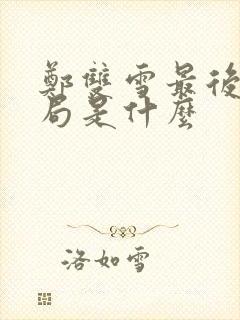 鄭雙雪最後
局是什麼
洛如雪